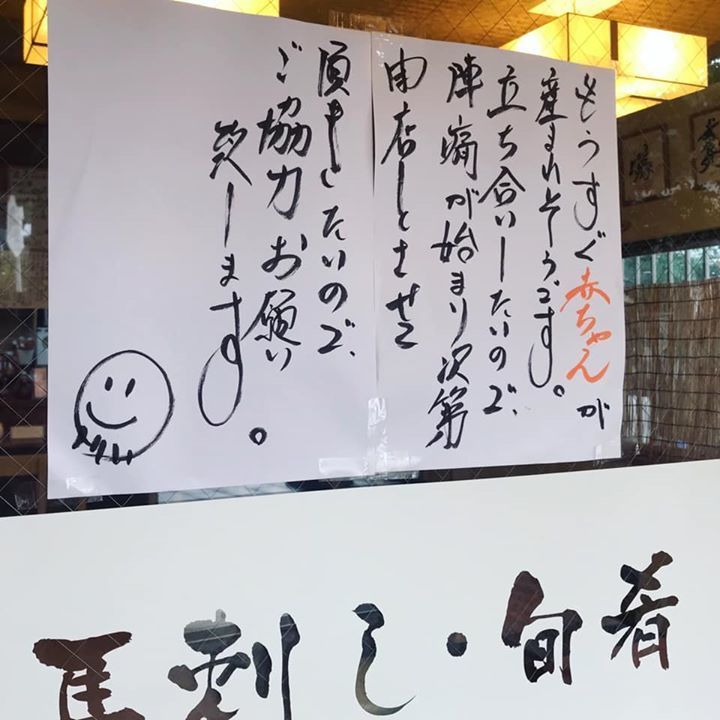 もうすぐ赤ちゃんが
産まれそうです。
立ち合いしたいので、
陣痛が始まり次第
閉店とさせて
頂きたいので、
ご協力お願い
致します。
馬刺し・旬肴